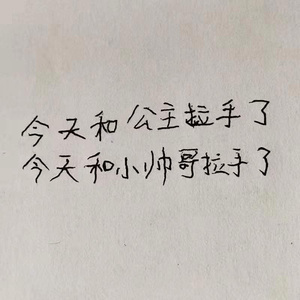 今天和公主拉手了
今天和小帅哥拉手了